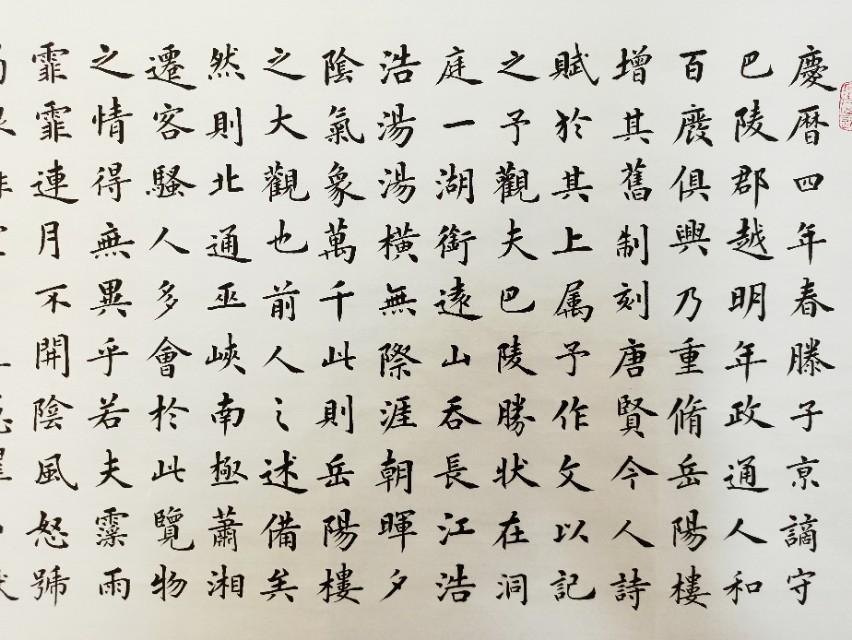 慶暦四年春滕子亰謫守
巴陵郡越明年政通人和
百廢俱興乃重脩岳陽樓
增其舊制刻唐賢今人詩
賦於其上属予作文以記
之予觀夫巴陵勝狀在洞
庭一湖銜遠山吞長江浩
浩湯湯橫無際涯朝暉夕
陰氣象萬千此則岳陽樓
之大觀也前人之述備矣
然則北通巫峽南極蕭湘
遷客騷人多會於此覽物
之情得無異乎若夫霪雨
霏霏連月不開陰風怒號